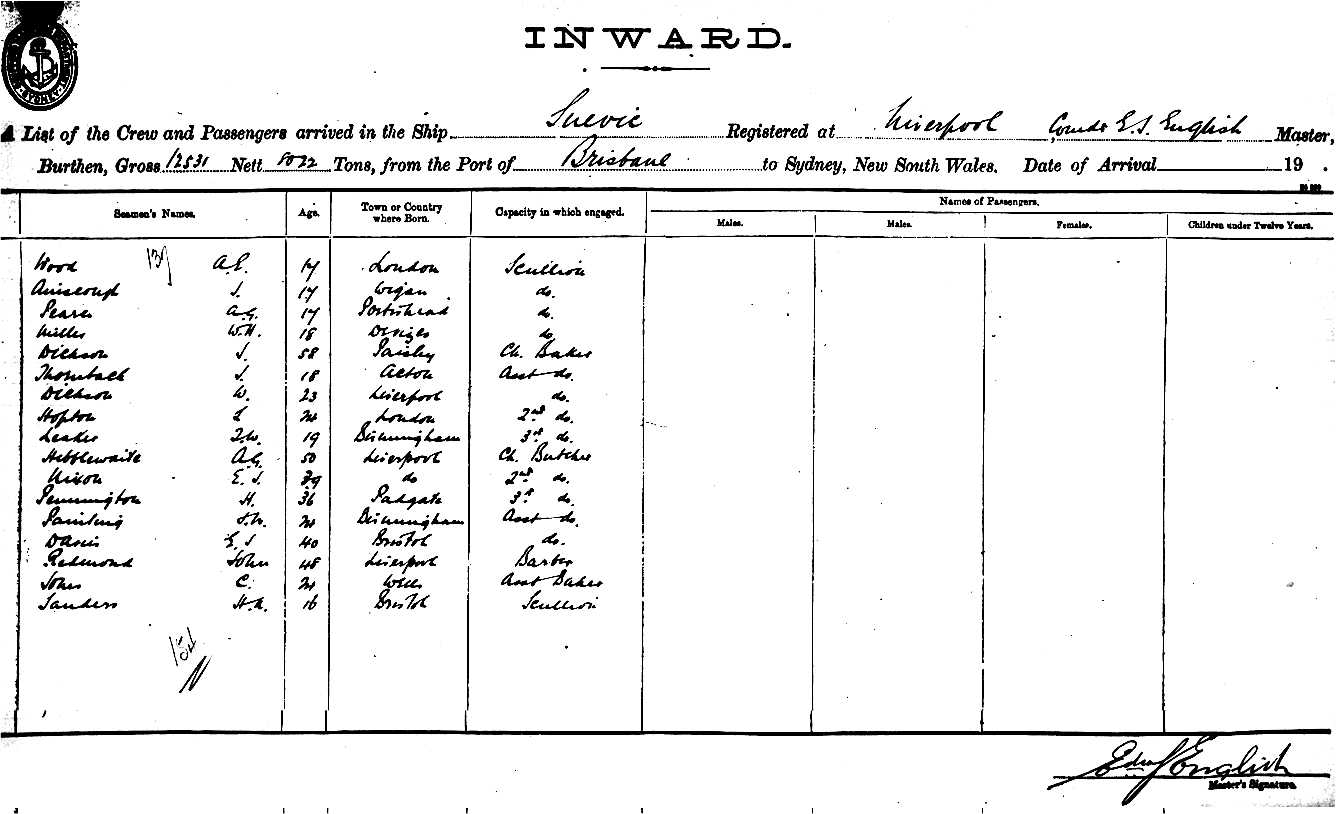 INWARD.
A List of the Crew and Passengers arrived in the Ship Suevic Registered at Liverpool Comdr E. J. English Master,
Burthen, Gross 12531 Nett 8022 Tons, from the Port of Brisbane to Sydney, New South Wales. Date of Arrival 19 .
Names of Passengers.
Seamen's Names. Age. Town or Country where Born. Capacity in which engaged. Males. Males. Females. Children under Twelve Years.
Wood A.E. 17 London Scullion
Ainscough J. 17 Wigan do.
Pearce A.G. 17 Portishead do.
Miller W.H. 18 Devizes do
Dickson J. 58 Paisley Ch. Baker
Thornback J. 18 Acton Asst do.
Dickson W. 23 Liverpool do.
Hopton L 24 London 2nd do.
Leakes T.W. 19 Birmingham 3rd do.
Hebblewaite A.G. 50 Liverpool Ch. Butcher
Nixon E.J. 39 do 2nd do.
Pennington H. 36 Padgate 3rd do.
Painting 24 Birmingham Asst do.
Davis E J 40 Bristol do.
Redmond John 48 Liverpool Barber
Johns C. 24 Wells Asst Baker
Sanders H.A. 16 Bristol Scullion
Edw J English
Master's Signature.